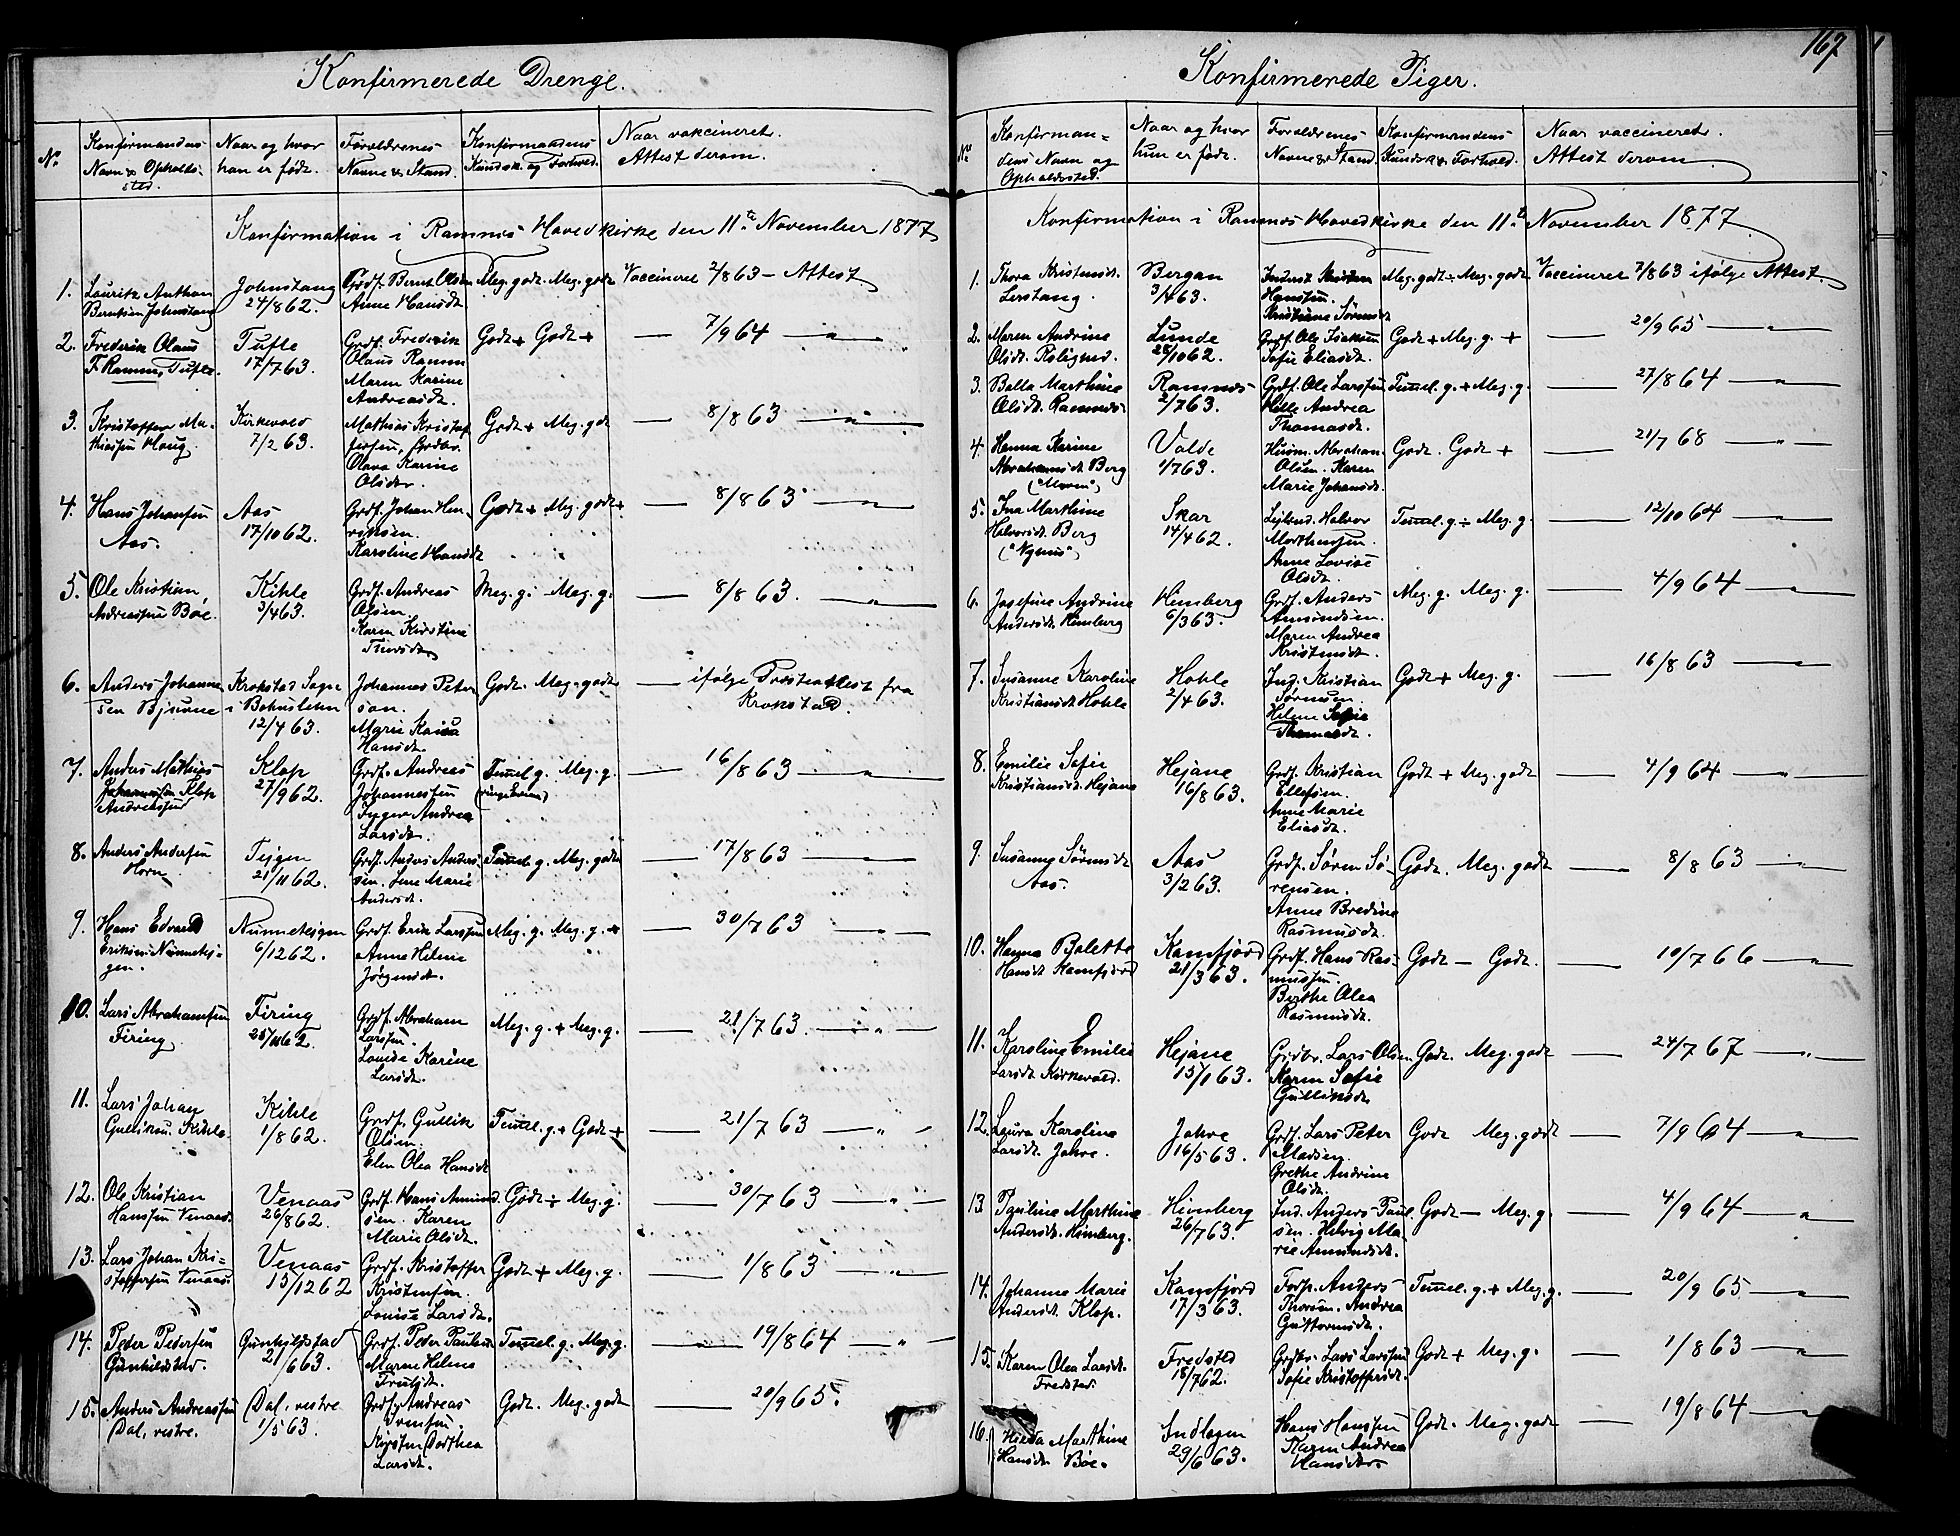 Konfirmerede Drenge.
No. Konfirmandens Navn & Opholds-sted. Naar og hvor han er født. Forældrenes Navne & Stand. Konfirmandens Kundsk. og Forhold. Naar vakcineret. Attest derom.
Konfirmation i Ramnes Hovedkirke den 11te November 1877
1. Lauritz Anthon Johnstang Grdf. Bernt Olsen Meg. godt. Meg. godt Vaccineret 2/8 63 - Attest
Berntsen Johnstang 24/8 62. Anne Hansdt.
2. Frederik Olaus Tufte Grdf. Frederik Godt + Godt + — 7/9 64 — "
F. Ramm Tufte. 17/7 63. Olaus Ramm
Maren Karine
Andreasdt.
3. Kristoffer Ma- Kirkevold Mathias Kristof- Godt + Meg. godt — 8/8 63 — "
thiesen Haug. 7/2 63. fersen, Grdbr.
Olava Karine
Olsdtr.
4. Hans Johansen Aas Grdf. Johan Hen- Godt + Meg. godt + — 8/8 63 — "
Aas. 17/10 62. riksen.
Karoline Hansdt
5. Ole Kristian Kihle Grdf. Andreas Meg. g. Meg. g. — 8/8 63. — "
Andreassen Bøe. 3/4 63. Olsen
Karen Kirstine
6. Anders Johanne- Krokstad Sogn Johannes Peter- Godt. Meg. godt — ifølge Presteattest fra
sen i Bohuslehn son. Krokstad.
12/4 63. Marie
Hansdt.
7. Anders Mathias Klop Grdf. Andreas Temel. g. Meg. g. — 16/8 63 — "
Johannessen Klop 27/9 62. Johannessen
Andreassen Inger Andrea
Larsdt.
8. Anders Andersen Tejgen Grdf. Anders Ander- Temel. g. Meg. godt — 17/8 63 — "
Horn 21/11 62. sen. Lene Marie
Andersdt.
9. Hans Edvard Nunnetejgen Grdf. Erik Larssen Meg. g. Meg. g. + — 30/7 63 — "
Eriksen Nunnetej- 6/12 62. Anne Helene
gen. Jørgensdt.
10. Lars Abrahamsen Firing Grdf. Abraham Meg. g. + Meg. g. — 21/7 63. — "
Firing. 25/11 62. Larssen.
Lovise Karine
Larsdt.
11. Lars Johan Kihle Grdf. Gullik Temel. g. + Godt + — 21/7 63 — "
Gulliksen Kihle. 1/8 62. Olsen.
Elen Olea Hansdt
12. Ole Kristian Venaas Grdf. Hans Amund- Godt ÷ Meg. g. — 30/7 63 — "
Hanssen Venaas. 26/8 62. sen. Karen
Marie Olsdt.
13. Lars Johan Kri- Venaas Grdf. Kristoffer Godt + Meg. g. — 1/8 63 — "
stoffersen Venaas. 15/12 62 Kristensen.
Lovise Larsdt.
14. Peder Pedersen Gunhildstad Grdf. Peder Paulsen Temel. g. Meg. g. — 19/8 64 — "
Gunhildstad. 21/6 63. Maren Helene
15. Anders Andreassen Dal, vestre Grdf. Andreas Godt. Meg. godt — 20/9 65.
Dal, vestre. 1/5 63. Ivensen.
Kirsten Dorthea
Larsdt.
167
Konfirmerede Piger.
No. Konfirman-dens Navn og Opholdssted. Naar og hvor hun er født. Forældrenes Navne & Stand. Konfirmandens Kundsk. & Forhold. Naar vaccineret. Attest derom.
Konfirmation i Ramnes Hovedkirke den 11te November 1877.
1. Thora Kristensdt. Bergan Inderst Kristen Meg. godt ÷ Meg. godt Vaccineret 7/8 63 ifølge Attest
Lerstang. 3/4 63. Hanssen.
Kristine Sørensdt
2. Maren Andrine Lunde Grdf. Ole Isaksen Godt + Meg. g. + — 20/9 65 — "
Olsdt. Rolighed. 28/10 62. Sofie Eliasdt.
3. Bolla Marthine Ramnes Grdf. Ole Larssen Temel. g. + Meg. g. — 27/8 64 — "
Olsdt. Ramnes. 2/7 63. Helle Andrea
Thomasdt.
4. Hanna Karine Valde Husm. Abraham Godt. Godt + — 21/7 68 — "
Abrahamsdt. Berg 1/7 63. Olsen. Karen
("Moren") Marie Johansdt.
5. Ina Marthine Skar Lejlænd. Halvor Temel. g. ÷ Meg. g. — 12/10 64 — "
Halvorsdt. Berg 14/4 62. Mathissen.
Anne Lovise
Olsdt.
6. Josefine Andrine Himberg Grdf. Anders Meg. g. Meg. g. — 4/9 64 — "
Andersdt. Himberg 6/3 63. Amundsen.
Maren Andrea
Kristensdt.
7. Susanne Karoline Hohle Ind. Kristian Godt + Meg. g. — 16/8 63 — "
Kristiansdt. Hohle 2/4 63. Sørensen.
Helene Sofie
Thomasdt.
8. Emilie Sofie Hejane Grdf. Kristian Godt + Meg. godt — 4/9 64 — "
Kristiansdt. Hejane 16/8 63. Ellefsen.
Anne Marie
Eliasdt.
9. Susanne Sørensdt Aas Grdf. Søren Sø- Godt. Meg. godt — 8/8 63 — "
Aas. 3/2 63. rensen.
Anne Bredine
Rasmusdt.
10. Hanna Bolette Kamfjord Grdf. Hans Ras- Godt — Godt. — 10/7 66 — "
Hansdt Kamfjord 21/3 63. mussen.
Berthe Olea
Rasmusdt.
11. Karoline Emilie Hejane Grdbr. Lars Olsen Godt. Meg. godt — 24/7 67 — "
Larsdt. Kirkevold. 15/1 63. Karen Sofie
Gulliksdt.
12. Laura Karoline Jahre Grdf. Lars Peter Godt Meg. godt — 7/9 64 — "
Larsdt. Jahre. 16/5 63. Madsen.
Grethe Andrine
Olsdt.
13. Pauline Marthine Himberg Ind. Anders Paul- Godt — Meg. g. — 4/9 64 — "
Andersdt. Himberg. 26/7 63. sen. Helvig Ma-
rie Amundsdt.
14. Johanne Marie Kamfjord Forp. Anders Temel. g. + Meg. g. — 20/9 65. — "
Andersdt. Klop. 17/3 63. Thorsen. Andrea
Guttormsdt.
15. Karen Olea Larsdt. Fredsted Grdbr. Lars Larssen Godt + Meg. g. — 1/8 63 — "
Fredsted. 18/7 62. Sofie Kristoffersdt.
16. Hilda Marthine Indlagen Hans Hanssen Godt. Meg. godt — 19/8 64 — "
Hansdt. Bøe. 29/6 63. Karen Andrea
Hansdtr.